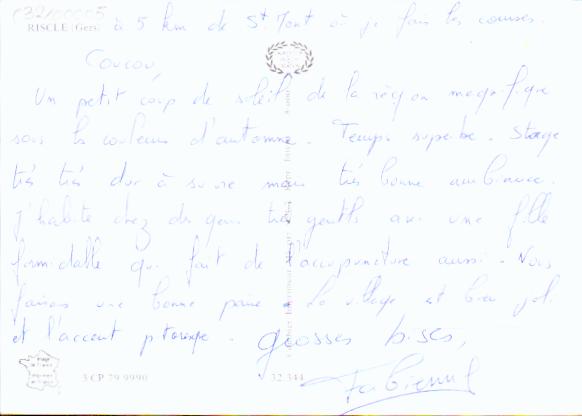 C32100005
RISCLE (Gers) à 5 km de St Mont où je fais les courses.
Coucou,
Un petit coup de soleil de la région magnifique
sous les couleurs d'automne. Temps superbe. Stage
très très dur à suivre mais très bonne ambiance.
J'habite chez des gens très gentils avec une fille
formidable qui fait de l'acupuncture aussi. Nous
faisons une bonne paire. Le village est bien joli
et l'accent pitoresque. grosses bises,
Fabienne
3 CP 79 9990
32 344